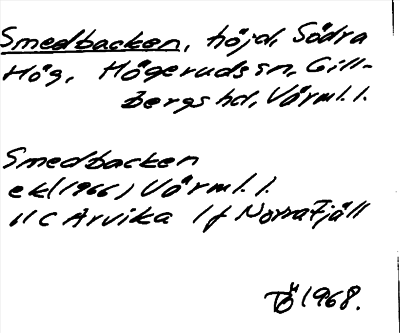 Smedbacken, höjd, Södra
Hög, Högeruds sn, Gill-
bergs hd, Värml. l.
Smedbacken
ek (1966) Värml. l.
11C Arvika 1f Norra Fjäll
TÖ 1968.